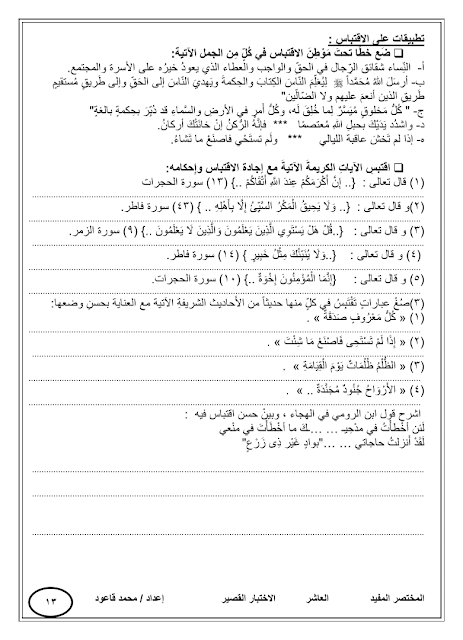 تطبيقات على الاقتباس :
❑ ضَع خطًا تحتَ مَوْطِنَ الاقتباس في كُلّ مِن الجمل الآتية:
أ- النِّساء شقائق الرّجال في الحقّ والواجب والعطاء الذي يعودُ خيرُه على الأسرة والمجتمع.
ب- أرسلَ اللهُ مُحمّداً ﷺ لِيُعلِّمَ النّاس الكِتابَ والحِكمةَ ويَهديَ النّاسَ إلى الحَقّ وإلى طَريق مُستقيم
طَريقِ الذين أنعمَ عليهم ولا الضالّين"
ج- " كُلُّ مَخلوقٍ مُيَسَّرٌ لِما خُلِقَ لَه، وكُلُّ أمرٍ في الأرضِ والسَّماءِ قد دُبِّرَ بحِكمةٍ بالغةٍ"
د- واشدُد يَدَيْكَ بحبلِ اللهِ مُعتصمًا *** فإنَّهُ الرُّكنُ إنْ خانَتْكَ أركانُ.
ه- إذا لم تَخْشَ عاقبة الليالي *** ولم تَستَحْي فاصنَعْ ما تَشاءُ.
❑ اقتبس الآياتِ الكريمةَ الآتيةَ مع إجادة الاقتباس وإحكامه:
(١) قال تعالى : {.. إنَّ أَكْرَمَكُمْ عِندَ اللهِ أَتْقَاكُمْ ..} (١٣) سورة الحجرات
(٢)و قال تعالى : {.. وَلَا يَحِيقُ الْمَكْرُ السَّيِّئُ إِلَّا بِأَهْلِهِ .. } (٤٣) سورة فاطر.
(٣) و قال تعالى : {..قُلْ هَلْ يَسْتَوِي الَّذِينَ يَعْلَمُونَ وَالَّذِينَ لَا يَعْلَمُونَ ..} (٩) سورة الزمر.
(٤) و قال تعالى : {..وَلَا يُنَبِّئُكَ مِثْلُ خَبِيرٍ } (١٤) سورة فاطر.
(٥) و قال تعالى : {إِنَّمَا الْمُؤْمِنُونَ إِخْوَةٌ ..} (١٠) سورة الحجرات.
(٣)صُغْ عباراتٍ تَقْتَبِسُ في كلٍّ منها حديثًا من الأحاديث الشريفةِ الآتية مع العناية بحسنِ وضعها:
(١) « كُلُّ مَعْرُوفٍ صَدَقَةٌ » .
(٢) « إِذَا لَمْ تَسْتَحِى فَاصْنَعْ مَا شِئْتَ » .
(٣) « الظُّلْمُ ظُلُمَاتٌ يَوْمَ الْقِيَامَةِ » .
(٤) « الأَرْوَاحُ جُنُودٌ مُجَنَّدَةٌ .. » .
اشرح قول ابن الرومي في الهجاء ، وبينْ حسن اقتباس فيه :
لَئن أخْطَأْتُ في مدْحِيـ ... ...ـكَ ما أخْطَأْتَ في منْعي
لَقَدْ أنزلتُ حاجاتي ... ..."بوادٍ غَيْرِ ذِى زَرْعِ"
المختصر المفيد العاشر الاختبار القصير إعداد / محمد قاعود ١٣